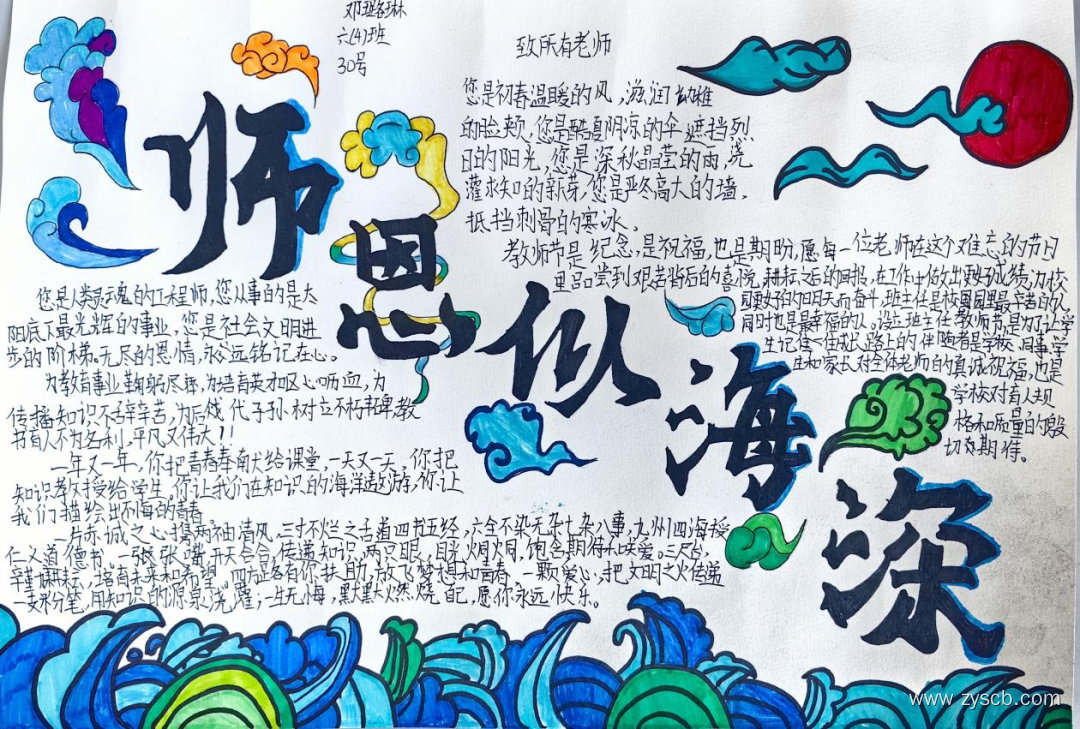 邓珺琳
六(4)班
30号
师恩似海深
致所有老师
您是初春温暖的风,滋润幼稚
的脸颊,您是酷夏阴凉的伞,遮挡烈
日的阳光,您是深秋晶莹的雨,浇
灌求知的新芽,您是严冬高大的墙,
抵挡刺骨的寒冰。
教师节是纪念,是祝福,也是期盼,愿每一位老师在这个难忘的节日
里品尝到艰苦背后的喜悦,耕耘之后的回报,在工作中做出成绩,为校
园更好的明天而奋斗,班主任是校园里最辛苦的人,
同时也是最幸福的人。设立班主任教师节,是为了让学
生记住成长路上的伴,陪着是学校、同事、学
生和家长对全体老师的真诚祝福,也是
学校对育人规
格和质量的殷
切期待。
您是人类灵魂的工程师,您从事的是太
阳底下最光辉的事业,您是社会文明进
步的阶梯。无尽的恩情,永远铭记在心。
为教育事业鞠躬尽瘁,为培育英才呕心沥血,为
传播知识不舍辛苦,为后代子孙树立不朽丰碑,教
书育人不为名利,平凡又伟大!!
一年又一年,你把青春奉献给课堂,一天又一天,你把
知识教授给学生,你让我们在知识的海洋遨游,你让
我们描绘出不悔的青春
一片赤诚之心携两袖清风,三寸不烂之舌道四书五经,六全不染无杂七杂八事,九州四海授
仁义道德书。一张张嘴开天合合,传递知识,两只眼,目光炯炯,饱含期待和关爱。三尺台,
辛勤耕耘,培育未来和希望,四方是名有你扶助,放飞梦想和青春,一颗爱心,把文明之火传递
一支米分笔,用知识的源泉浇灌;一生无悔,默默燃烧自己,愿你永远快乐。
www.zyscb.com